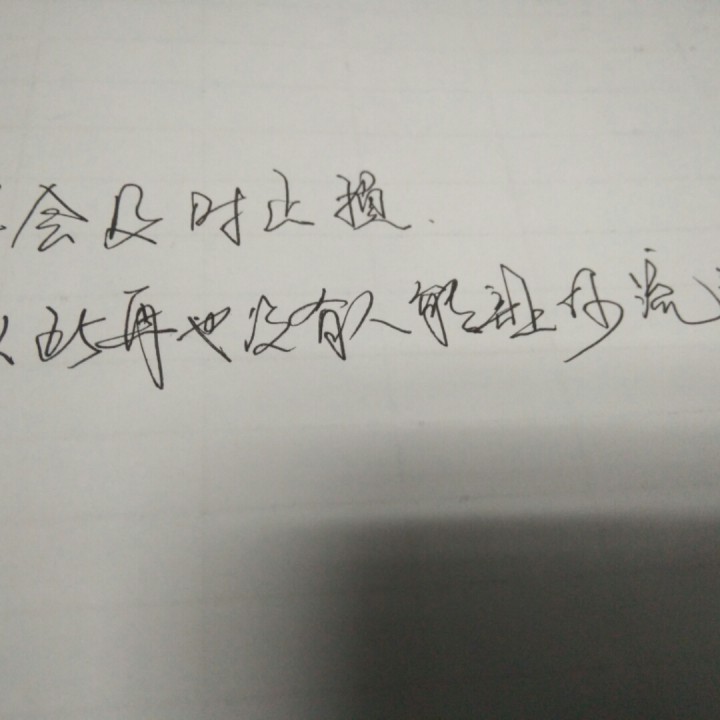 会及时止损.
从此再也没有人能让你流